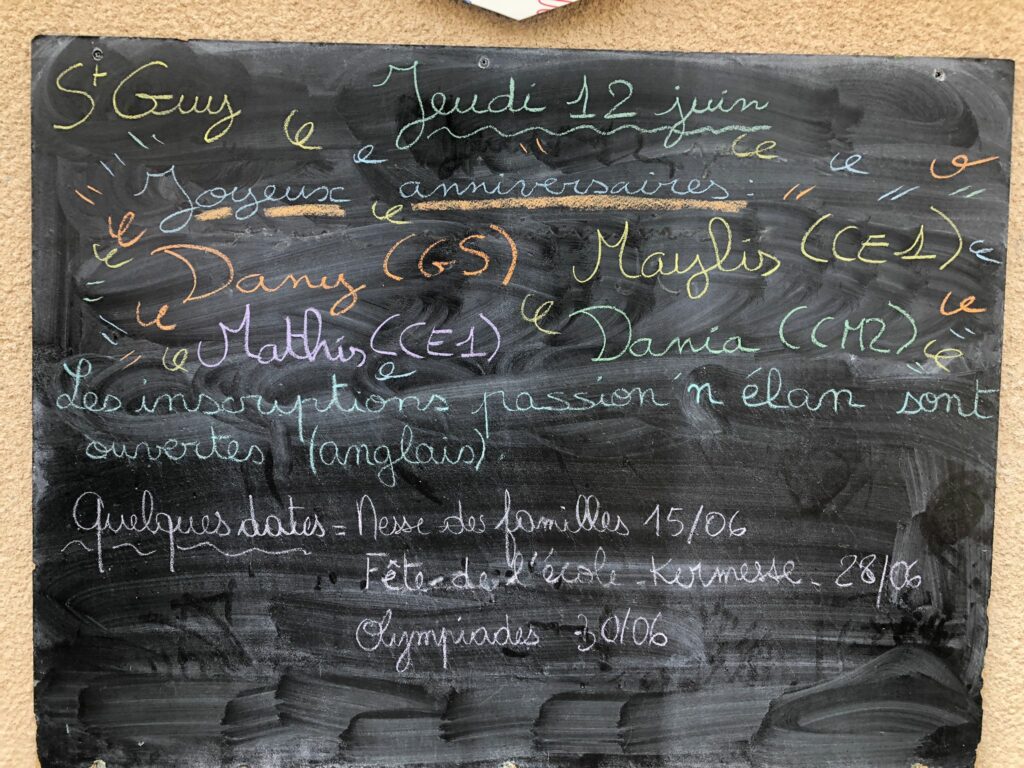 St Guy
Jeudi 12 juin
Joyeux anniversaires :
Dany (GS) Maylis (CE1)
Mathis (CE1) Dania (CM2)
Les inscriptions passion'n élan sont
ouvertes (anglais).
Quelques dates = Messe des familles 15/06
Fête de l'école - Kermesse - 28/06
Olympiades 30/06